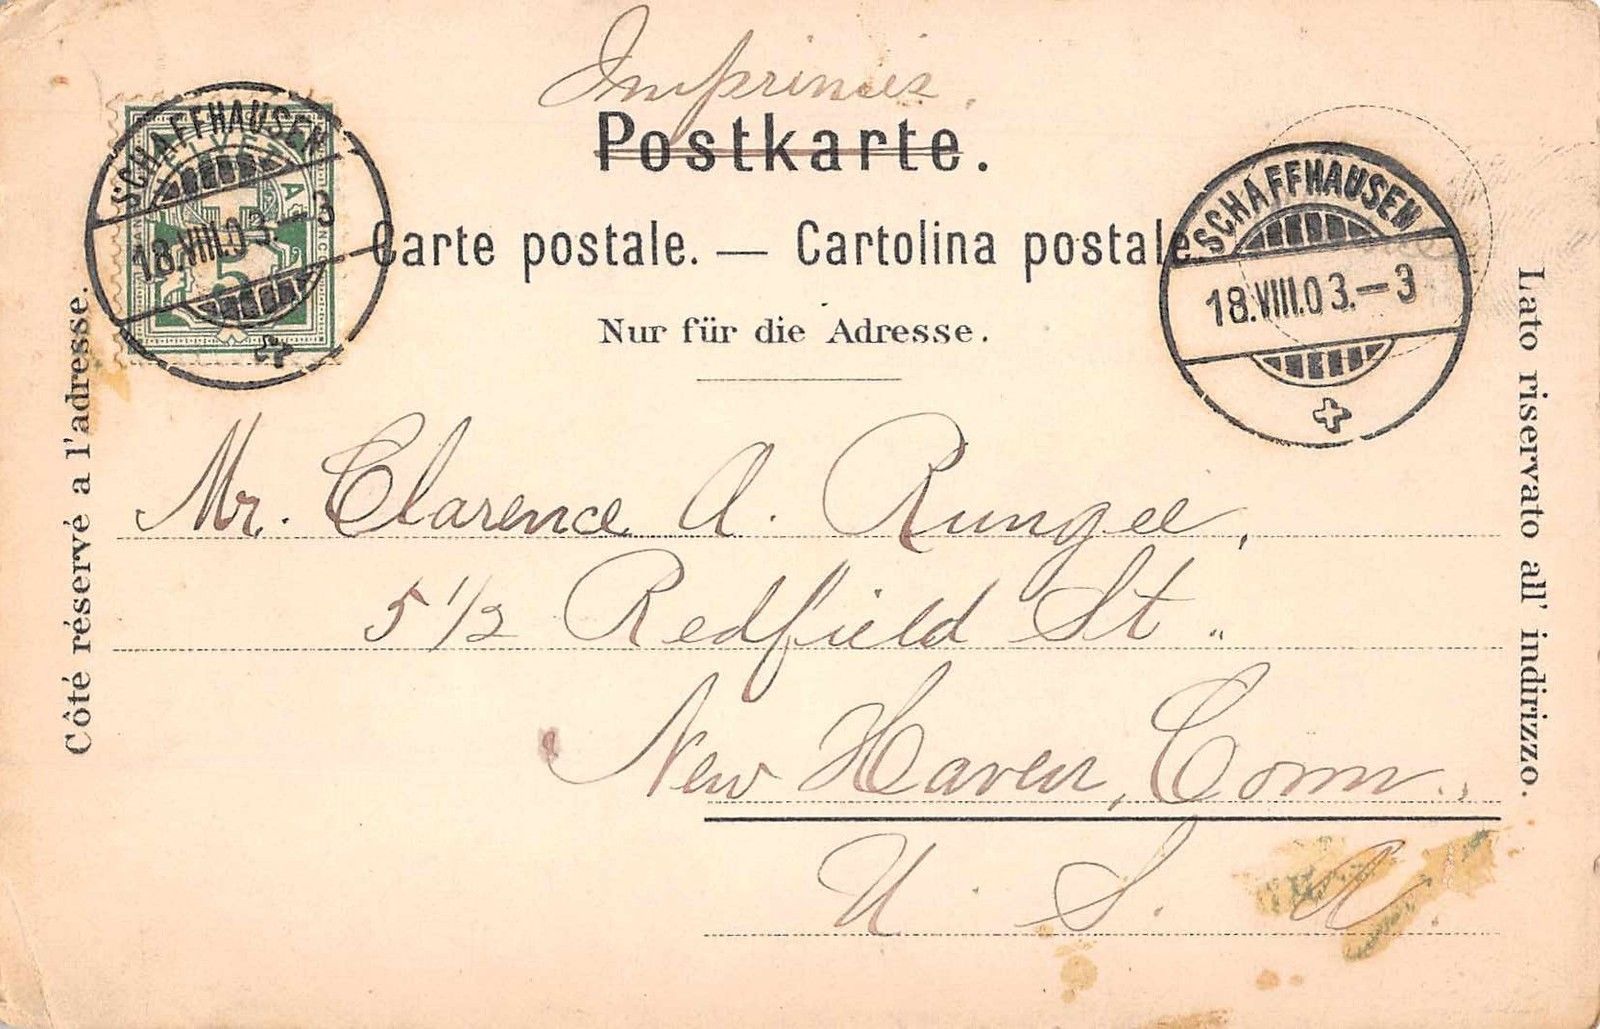 Imprimés.
Postkarte.
Carte postale. — Cartolina postale.
Nur für die Adresse.
SCHAFFHAUSEN
18.VIII.03.–3
HELVETIA
5
SCHAFFHAUSEN
18.VIII.03.–3
Côté réservé a l'adresse.
Lato riservato all' indirizzo.
Mr. Clarence A. Rungee,
5 1/2 Redfield St.
New Haven, Conn.,
U. S. A.